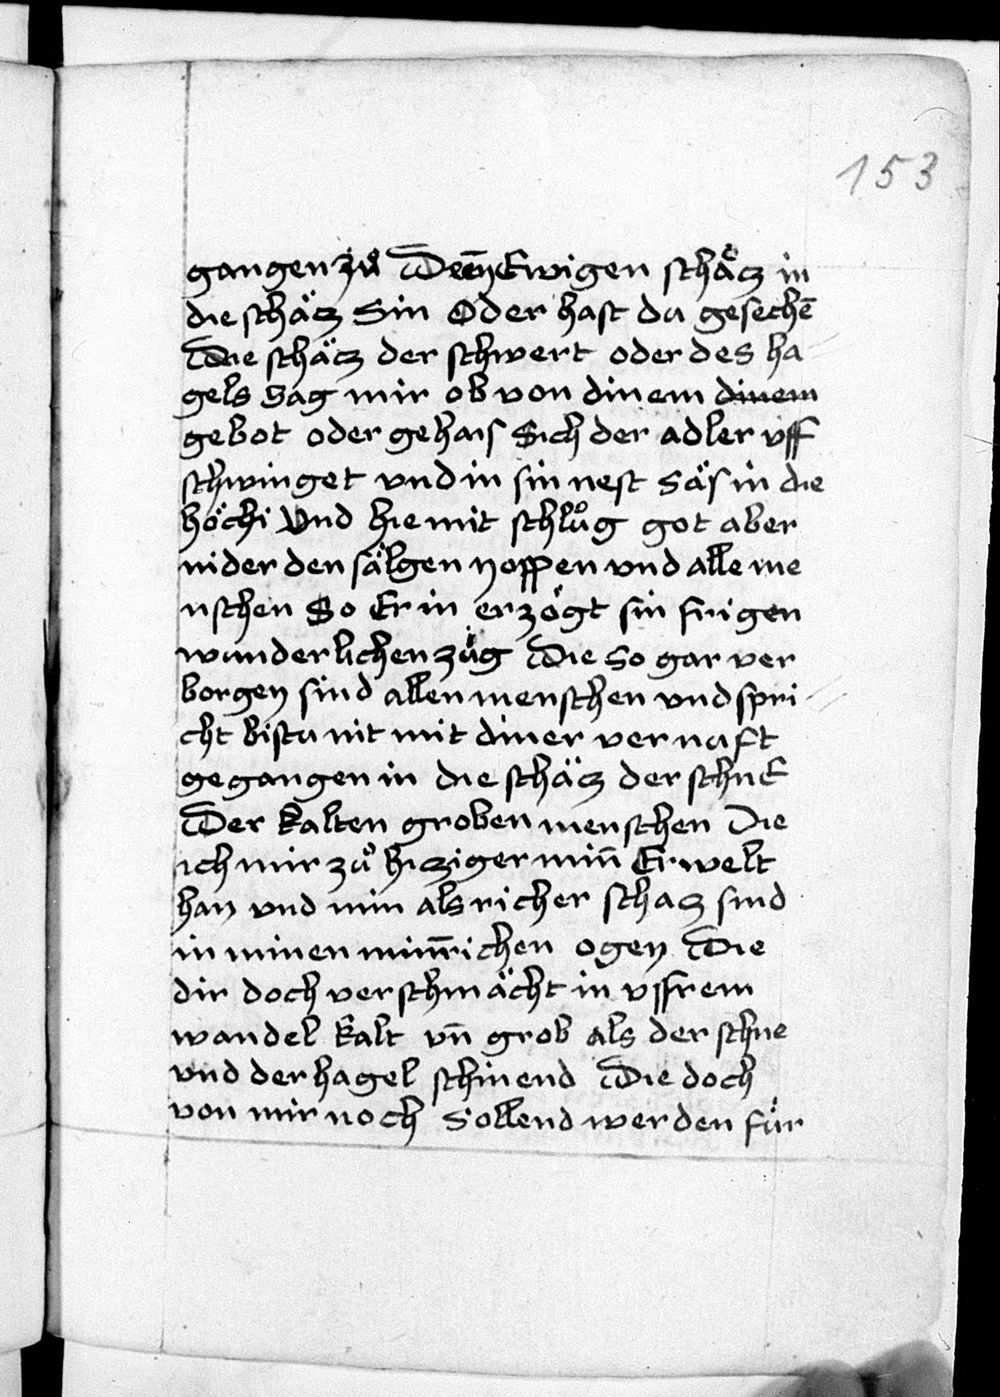 153
gangen zů Deēn Ewigen schaͤcz in
die schäcz Sin Oder hast du gesechē
Die schäcz der schwert oder des ha
gels Sag mir ob von dinem dinem
gebot oder gehaiſ Sich der adler vff
schwinget vnd in sin nest Säſ in die
höchi Vnd hie mit schlůg got aber
nider den sälgen yoppen vnd alle me
nschen So Er in erzögt sin frigen
wunderlichen züg Die so gar ver
borgen sind allen menschen vnd spri
cht bistu nit mit diner vernuft
gegangen in die schäcz der schnE
Der kalten groben menschen Die
ich mir zů hicziger min̄ Erwelt
han vnd min als richer schacz sind
in minen min̄richen ogen Die
dir doch verschmächt in vssrem
wandel kalt vn̄ grob als der schne
vnd der hagel schinend Die doch
von mir noch Sollend werden für